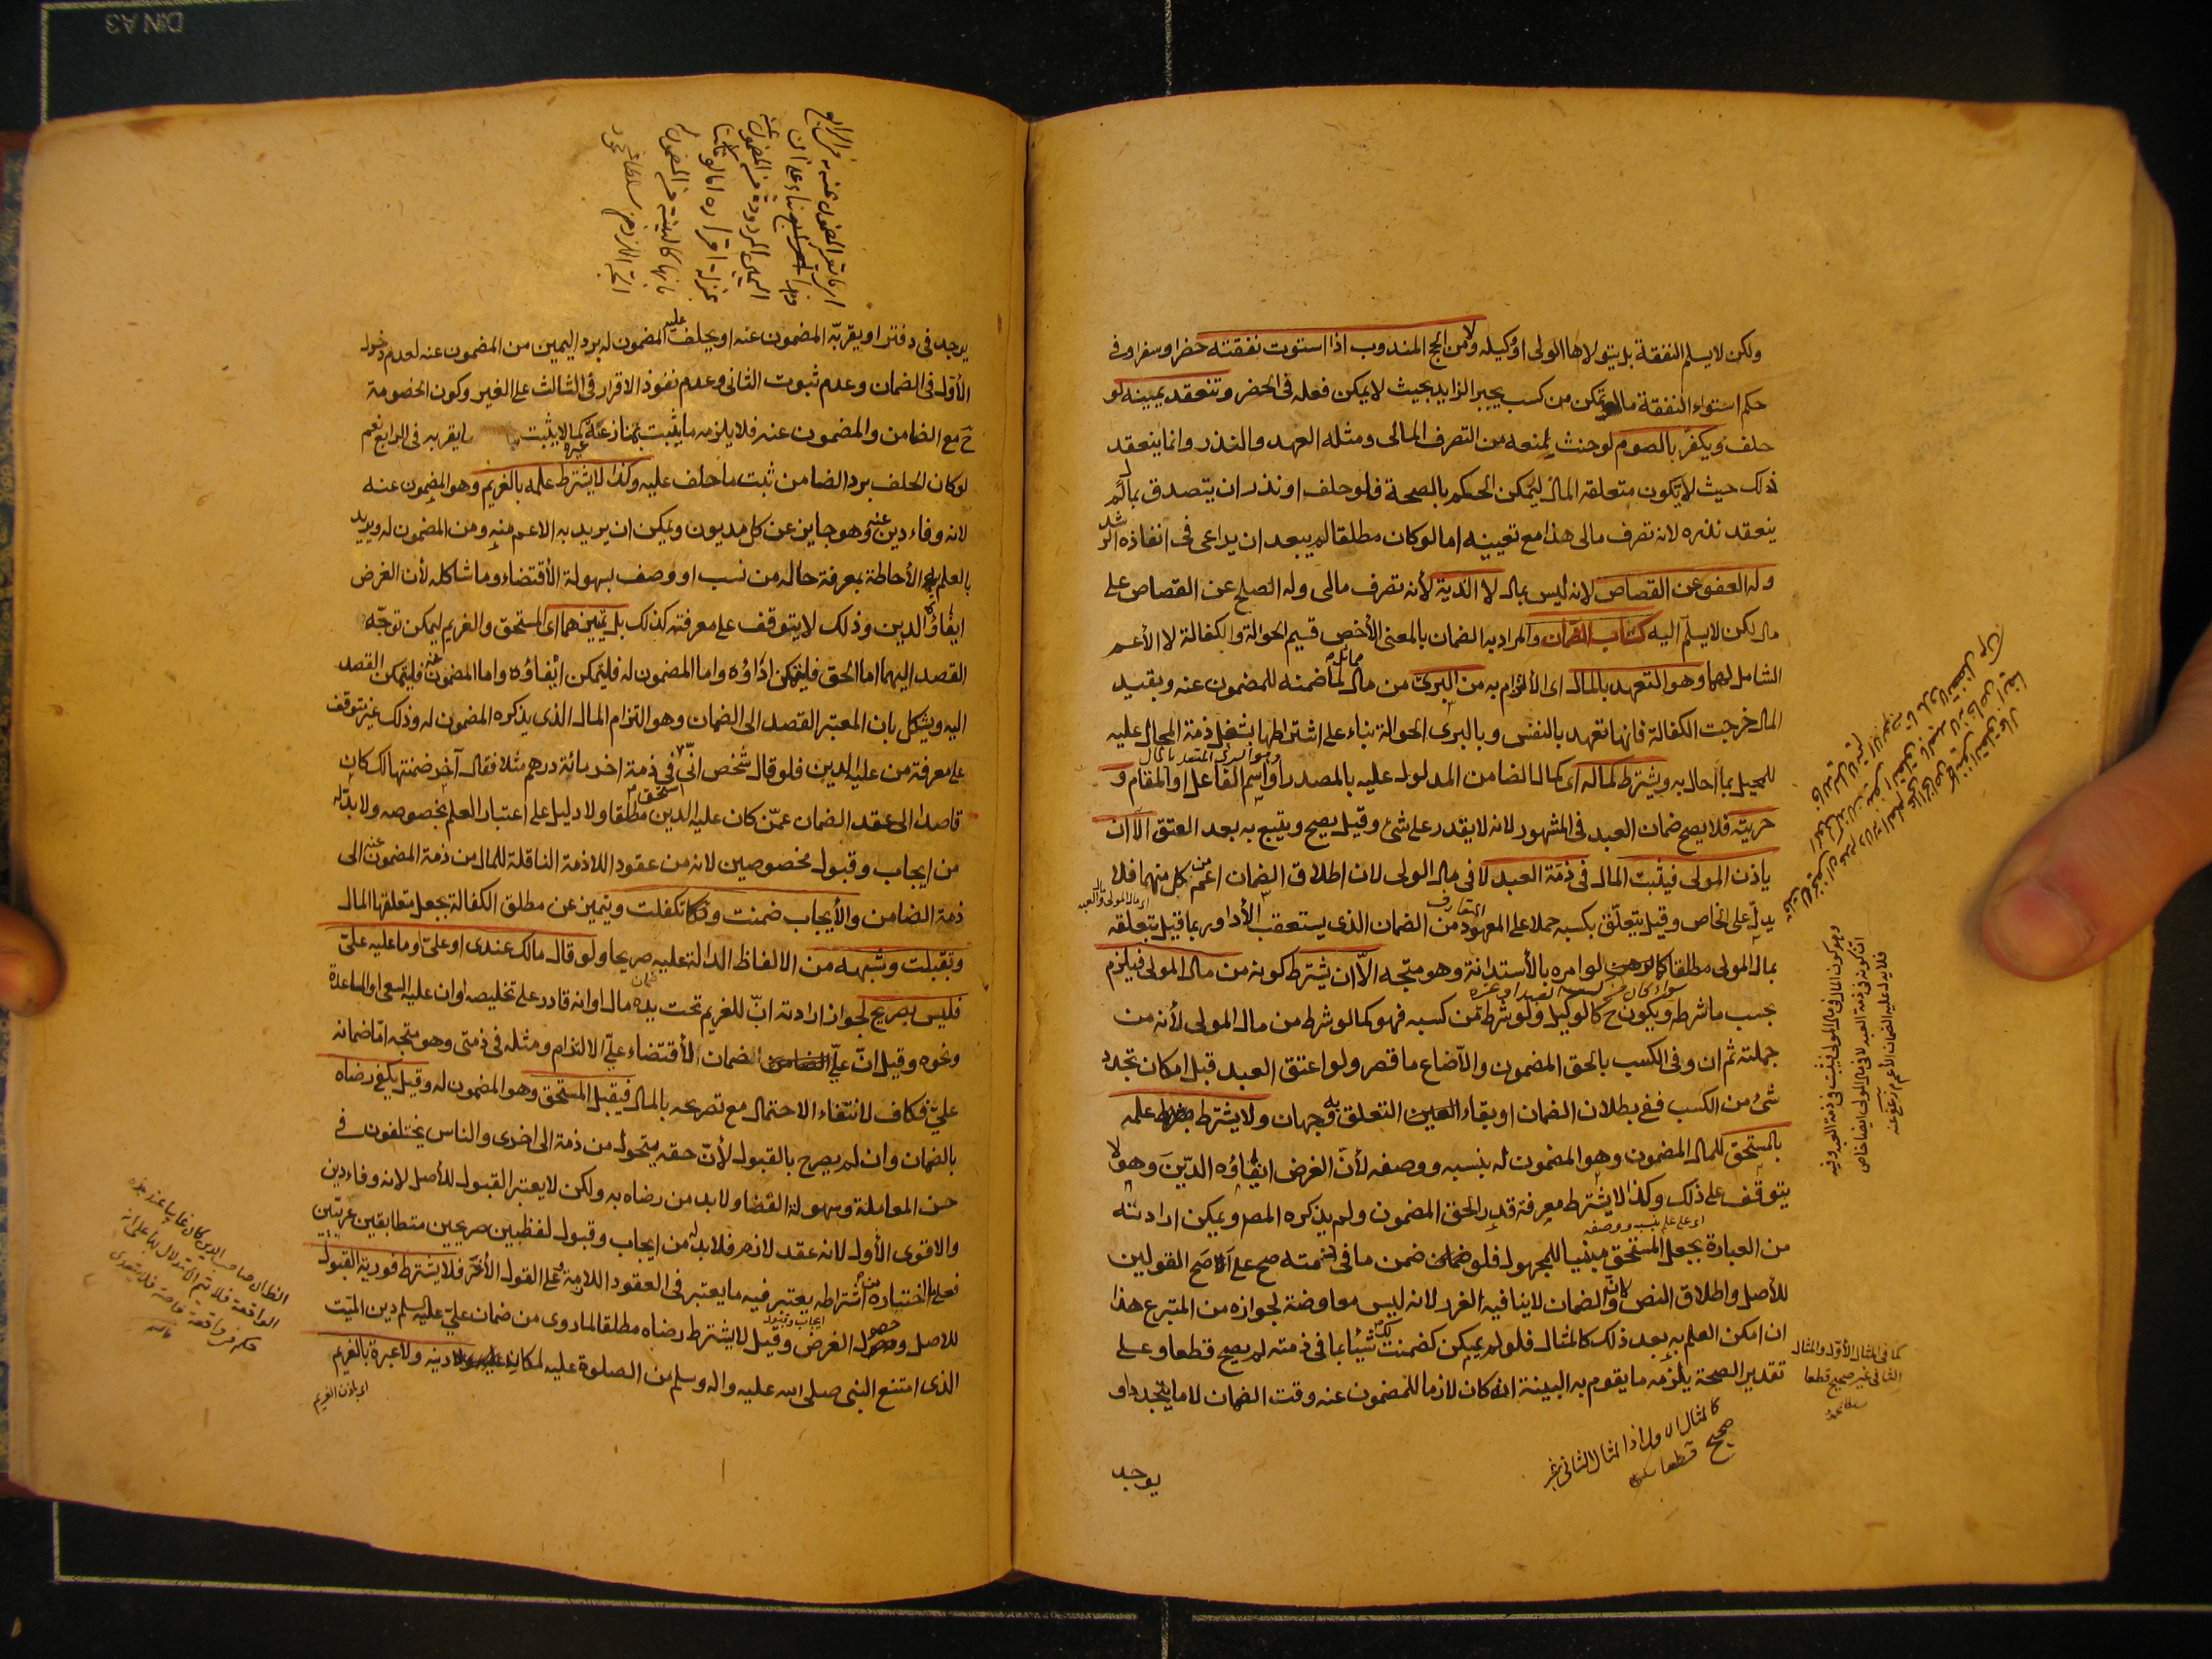 ولكن لا يسلم النفقة بل يتولاها الولى او وكيله ولا من الحج المندوب اذا استوت نفقته حضرا وسفرا وفى
حكم استواء النفقة ما لو تمكن من كسب يجبر الزايد بحيث لا يمكن فعله فى الحضر وتنعقد يمينه لو
حلف ويكفر بالصوم لو حنث لمنعه من التصرف المالى ومثله العهد والنذر وانما ينعقد
ذلك حيث لا يكون متعلقه المال ليمكن الحكم بالصحة فلو حلف او نذر ان يتصدق بمال لم
ينعقد نذره لانه تصرف مالى هذا مع تعيينه اما لو كان مطلقا لم يبعد ان يراعى فى انفاذه الرشد
وله العفو عن القصاص لانه ليس بمال لا الدية لأنه تصرف مالى وله الصلح عن القصاص على
مال لكن لا يسلم اليه كتاب الضمان والمراد به الضمان بالمعنى الأخص قسيم الحوالة والكفالة لا الأعم
الشامل لهما وهو التعهد بالمال اى الألتزام به من البرئ من مال مماثل لما ضمنه للمضمون عنه وبقيد
المال خرجت الكفالة فانها تعهد بالنفس وبالبرئ الحوالة بناء على اشتراطها بشغل ذمة المحال عليه
للمحيل بما احال به ويشترط كماله اى كمال الضامن المدلول عليه بالمصدر او اسم الفاعل او المقام و
حريته فلا يصح ضمان العبد فى المشهور لانه لا يقدر على شئ وقيل يصح ويتبع به بعد العتق الا ان
ياذن المولى فيثبت المال فى ذمة العبد لا فى مال المولى لان اطلاق الضمان اعم من كل منهما فلا
يدل على الخاص وقيل يتعلق بكسبه حملا على المعهود من الضمان الذى يستعقب الأداء وربما قيل بتعلقه
بمال المولى مطلقا كما لو امره بالأستدانة وهو متجه الا ان يشترط كونه من مال المولى فيلزم
بحسب ما شرطه ويكون ح كالوكيل ولو شرطه من كسبه فهو كما لو شرط من مال المولى لأنه من
جملته ثم ان وفى الكسب بالحق المضمون والا ضاع ما قصر ولو اعتق العبد قبل امكان تجدد
شئ من الكسب ففى بطلان الضمان او بقاء التعلق به وجهان ولا يشترط علمه
بالمستحق للمال المضمون وهو المضمون له بنسبه ووصفه لأن الغرض ايفاؤه الدين وهو لا
يتوقف على ذلك وكذا لا يشترط معرفة قدر الحق المضمون ولم يذكره المصر ويمكن ارادته
من العبارة بجعل المستحق مبنيا للمجهول فلو ضمن ما فى ذمته صح على اصح القولين
للأصل واطلاق النص ولأن الضمان لا ينافيه الغرر لانه ليس معاوضة لجوازه من المتبرع هذا
ان امكن العلم به بعد ذلك كالمثال فلو لم يمكن كضمنت لك شيئا مما فى ذمته لم يصح قطعا وعلى
تقدير الصحة يلزمه ما يقوم به البينة انه كان لازما للمضمون عنه وقت الضمان لا ما يتجدد او
يوجد
كما فى المثال الأول والمثال
الثانى غير صحيح قطعا
كالمثال الاول اذ المثال الثانى غير
صحيح قطعا
يوجد فى دفتر او يقر به المضمون عنه او يحلف عليه المضمون له برد اليمين من المضمون عنه لعدم دخول
الأول فى الضمان وعدم ثبوت الثانى وعدم نفوذ الاقرار فى الثالث على الغير وكون الخصومة
ح مع الضامن والمضمون عنه فلا يلزمه ما يثبت بمنازعة غيره كما لا يثبت ما يقر به فى الرابع نعم
لو كان الحلف برد الضامن ثبت ما حلف عليه وكذا لا يشترط علمه بالغريم وهو المضمون عنه
لانه وفاء دين عنه وهو جايز عن كل مديون ويمكن ان يريد به الاعم منه ومن المضمون له ويريد
بالعلم به الأحاطة بمعرفة حاله من نسب او وصف لسهولة الأقتضاء وما شاكله لأن الغرض
ايفاؤه الدين وذلك لا يتوقف على معرفته كذلك بل تميزهما اى المستحق والغريم ليمكن توجه
القصد اليهما اما الحق فليمكن اداؤه واما المضمون له فليتمكن ايفاؤه واما المضمون عنه فليتمكن القصد
اليه ويشكل بان المعتبر القصد الى الضمان وهو التزام المال الذى يذكره المضمون له وذلك غير متوقف
على معرفة من عليه الدين فلو قال شخص انى استحق فى ذمة اخر مائة درهم مثلا فقال آخر ضمنتها لك كان
قاصدا الى عقد الضمان عمن كان عليه الدين مطلقا ولا دليل على اعتبار العلم بخصوصه ولا بد له
من ايجاب وقبول مخصوصين لانه من عقود اللازمة الناقلة للمال من ذمة المضمون عنه الى
ذمة الضامن والأيجاب ضمنت وتكفلت ويتميز عن مطلق الكفالة بجعل متعلقها المال
وتقبلت وشبهه من الالفاظ الدالة عليه صريحا ولو قال مالك عندى او على او ما عليه على
فليس بصريح لجواز ارادته ان للغريم تحت يده مال او انه قادر على تخليصه او ان عليه السعى او المساعدة
ونحوه وقيل ان على ضمان الأقتضاء على الالتزام ومثله فى ذمتى وهو متجه اما ضمانه
على فكاف لانتفاء الاحتمال مع تصريحه بالمال فيقبل المستحق وهو المضمون له وقيل يكفى رضاه
بالضمان وان لم يصرح بالقبول لأن حقه يتحول من ذمة الى اخرى والناس يختلفون فى
حسن المعاملة وسهولة القضا ولا بد من رضاه به ولكن لا يعتبر القبول للأصل لانه وفاء دين
والاقوى الأول لانه عقد لازم فلا بد له من ايجاب وقبول لفظيين صريحين متطابقين عربيين
فعلى ما اختياره من اشتراطه يعتبر فيه ما يعتبر فى العقود اللازمة وعلى القول الأخر فلا يشترط فورية القبول
للاصل وحصول الغرض وقيل لا يشترط رضاه مطلقا لما روى من ضمان على عليه السلم دين الميت
الذى امتنع النبى صلى الله عليه واله وسلم من الصلوة عليه لمكان دينه ولا عبرة بالغريم
اى باذن الغريم